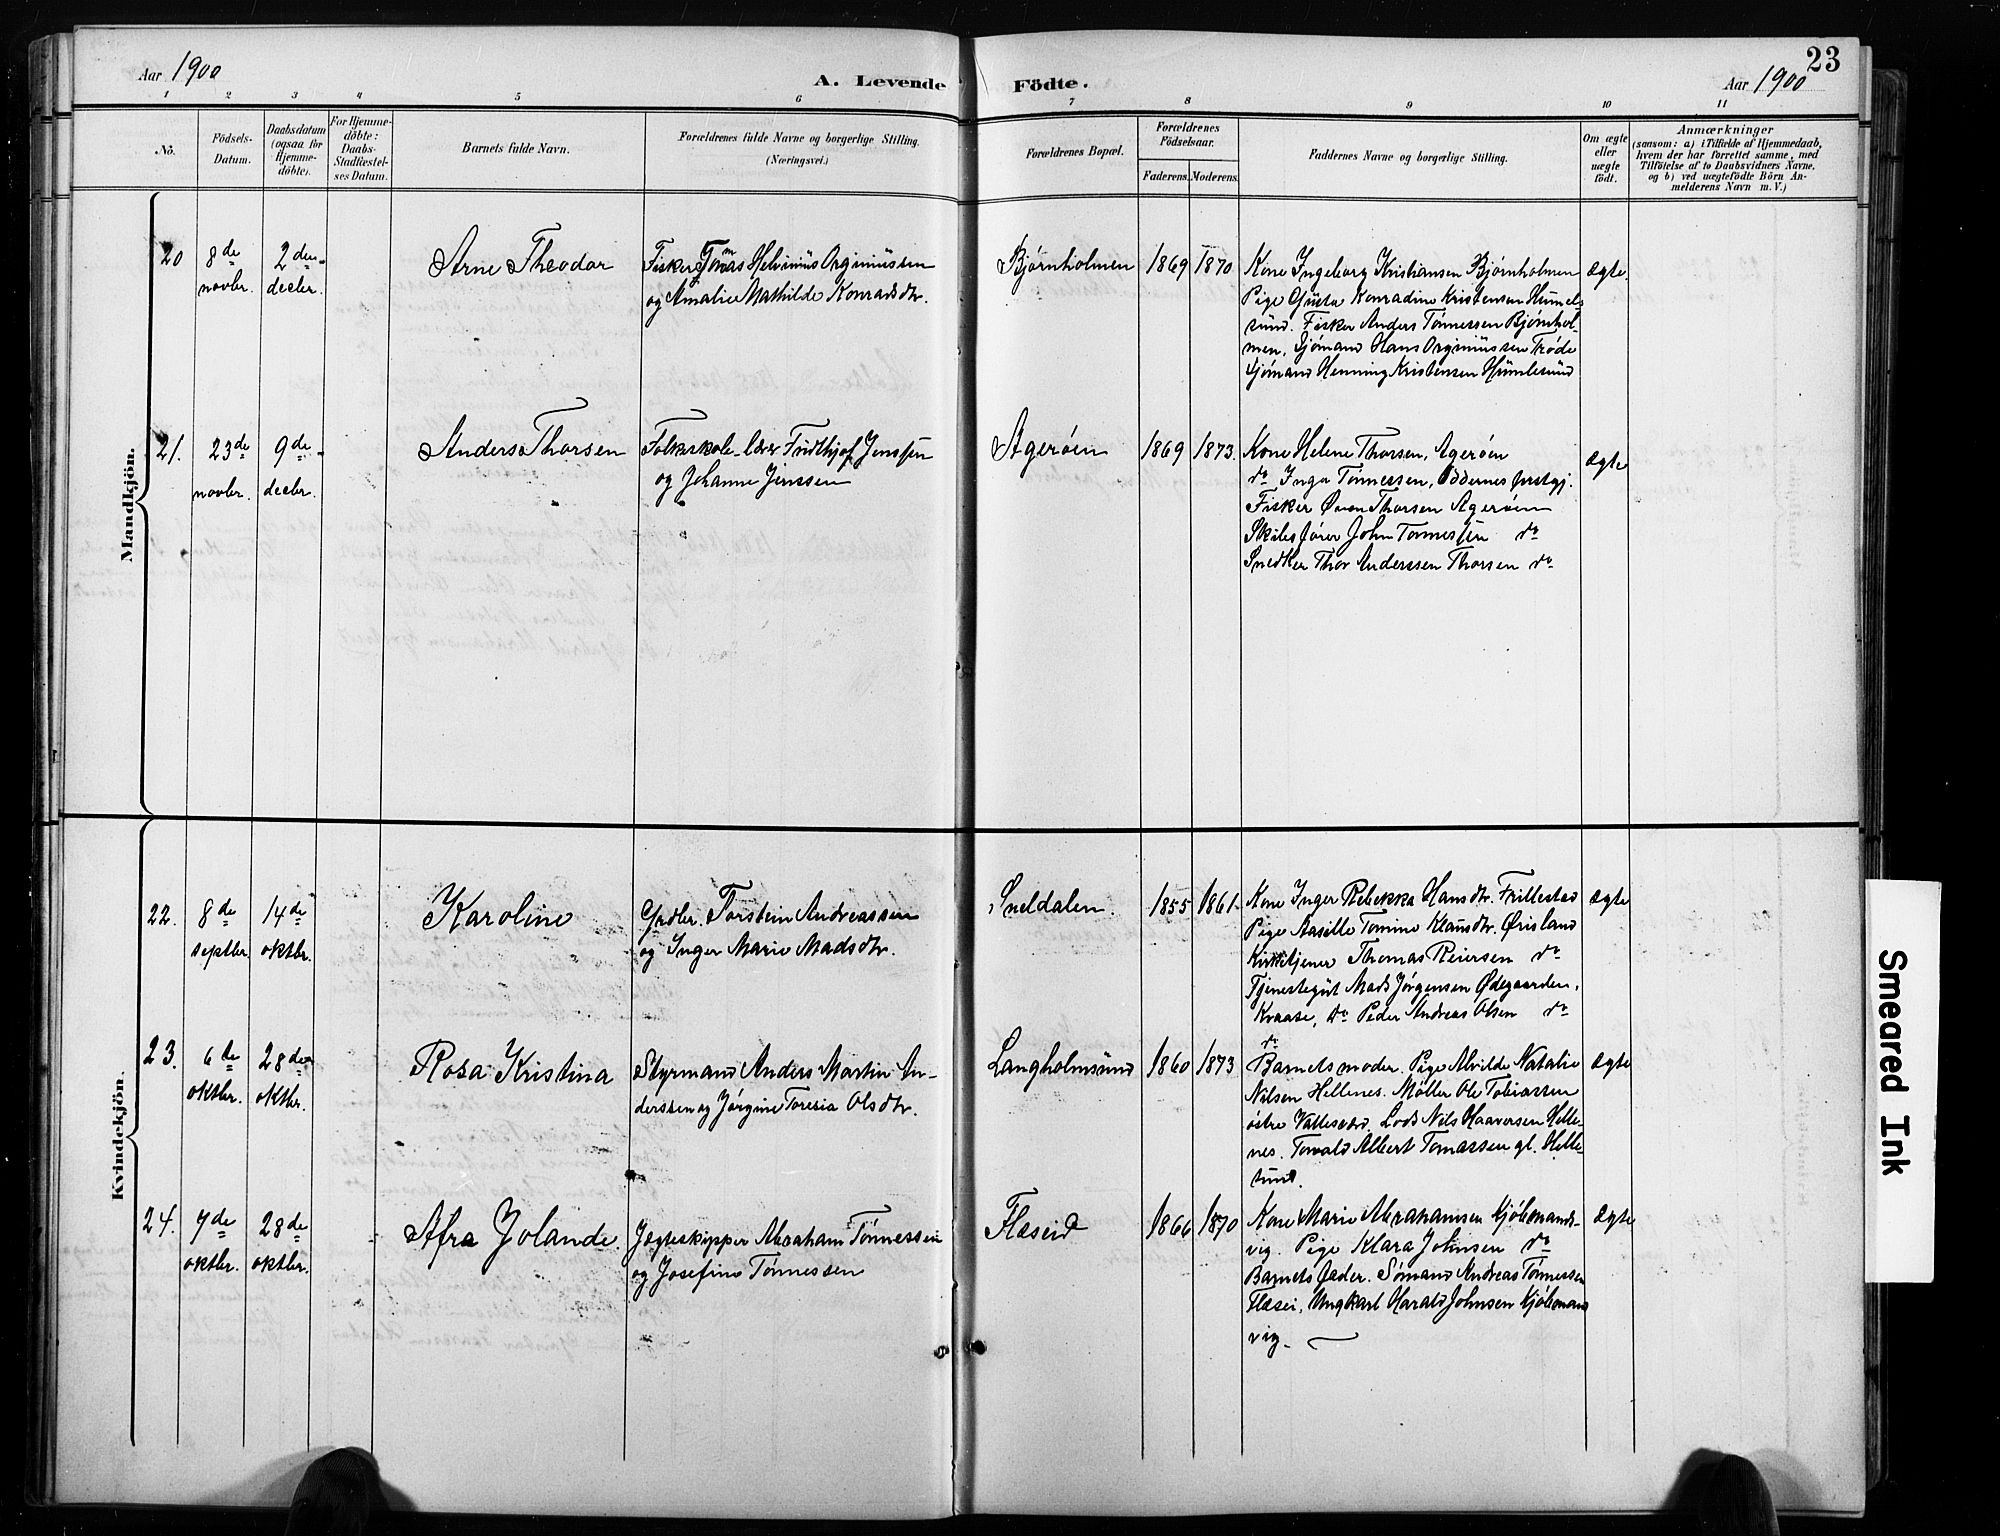 23
Aar 1900
A. Levende Födte.
Aar 1900
1 2 3 4 5 6 7 8 9 10 11
No.
Födsels-
Datum.
Daabsdatum
(ogsaa for
Hjemme-
döbte).
For Hjemme-
döbte:
Daabs-
Stadfæstel-
ses Datum.
Barnets fulde Navn.
Forældrenes fulde Navne og borgerlige Stilling.
(Næringsvei.)
Forældrenes Bopæl.
Forældrenes
Födselsaar.
Faderens. Moderens.
Faddernes Navne og borgerlige Stilling.
Om ægte
eller
uægte
födt.
Anmærkninger
(saasom: a) i Tilfælde af Hjemmedaab,
hvem der har forrettet samme, med
Tilföielse af to Daabsvidners Navne,
og b) ved uægtefödte Börn An-
melderens Navn m. V.)
Mandkjön.
20
8de
novbr.
2den
decbr.
Arne Theodor
Fisker Tomas Helvinius Orginiussen
og Amalie Mathilde Konradsdtr.
Bjørnholmen
1869
1870
Kone Ingeborg Kristiansen Bjørnholmen
Pige Gusta Konradine Kristensen Humel-
sund. Fisker Anders Tønnessen Bjørnhol-
men, Sjømand Hans Orginiussen Trøde
Sjømand Henning Kristensen Humlesund
ægte.
21.
23de
novbr.
9de
decbr.
Anders Thorsen
Folkskole-lærer Fridthjof Jenssen
og Johanne Jenssen
Agerøen
1869
1873.
Kone Helene Thorsen, Agerøen
do Inga Tønnessen, Oddernes prstgj.
Fisker Øven Thorsen Agerøen
Skibsfører John Tønnessen do
Snedker Thor Anderssen Thorsen do
ægte
Kvindekjön.
22.
8de
septbr.
14de
oktbr.
Karoline
Grdbr. Torstein Andreassen
og Inger Marie Madsdtr.
Sneldalen.
1855
1861.
Kone Inger Rebekka Hansdtr. Frillestad
Pige Aasille Tomine Klausdtr. Ørisland
Kirketjener Thomas Reiersen do
Tjenestegut Mads Jørgensen Ødegaarden,
Kvaase, do Peder Andreas Olsen do
do
ægte
23.
6de
oktbr.
28de
oktbr.
Rosa Kristina
Styrmand Anders Martin An-
derssen og Jørgine Teresia Olsdtr.
Langholmsund
1860
1873
Barnets moder. Pige Alvilde Natalie
Nilsen Hellenes. Møller Ole Tobiassen
østre Vallesværd. Lods Nils Haaversen Helle-
nes. Torvald Albert Tomassen gl. Helle-
sund.
ægte
24.
7de
oktbr.
28de
oktbr.
Afra Jolande.
Jægteskipper Abraham Tønnessen
og Josefine Tønnessen
Flæseid
1866
1870
Kone Marie Abrahamsen Kjøbmands-
vig. Pige Klara Johnsen do
Barnets fader. Sømand Andreas Tønnessen
Flæsei, Ungkarl Harald Johnsen Kjøbmans
vig.
ægte
Smeared Ink